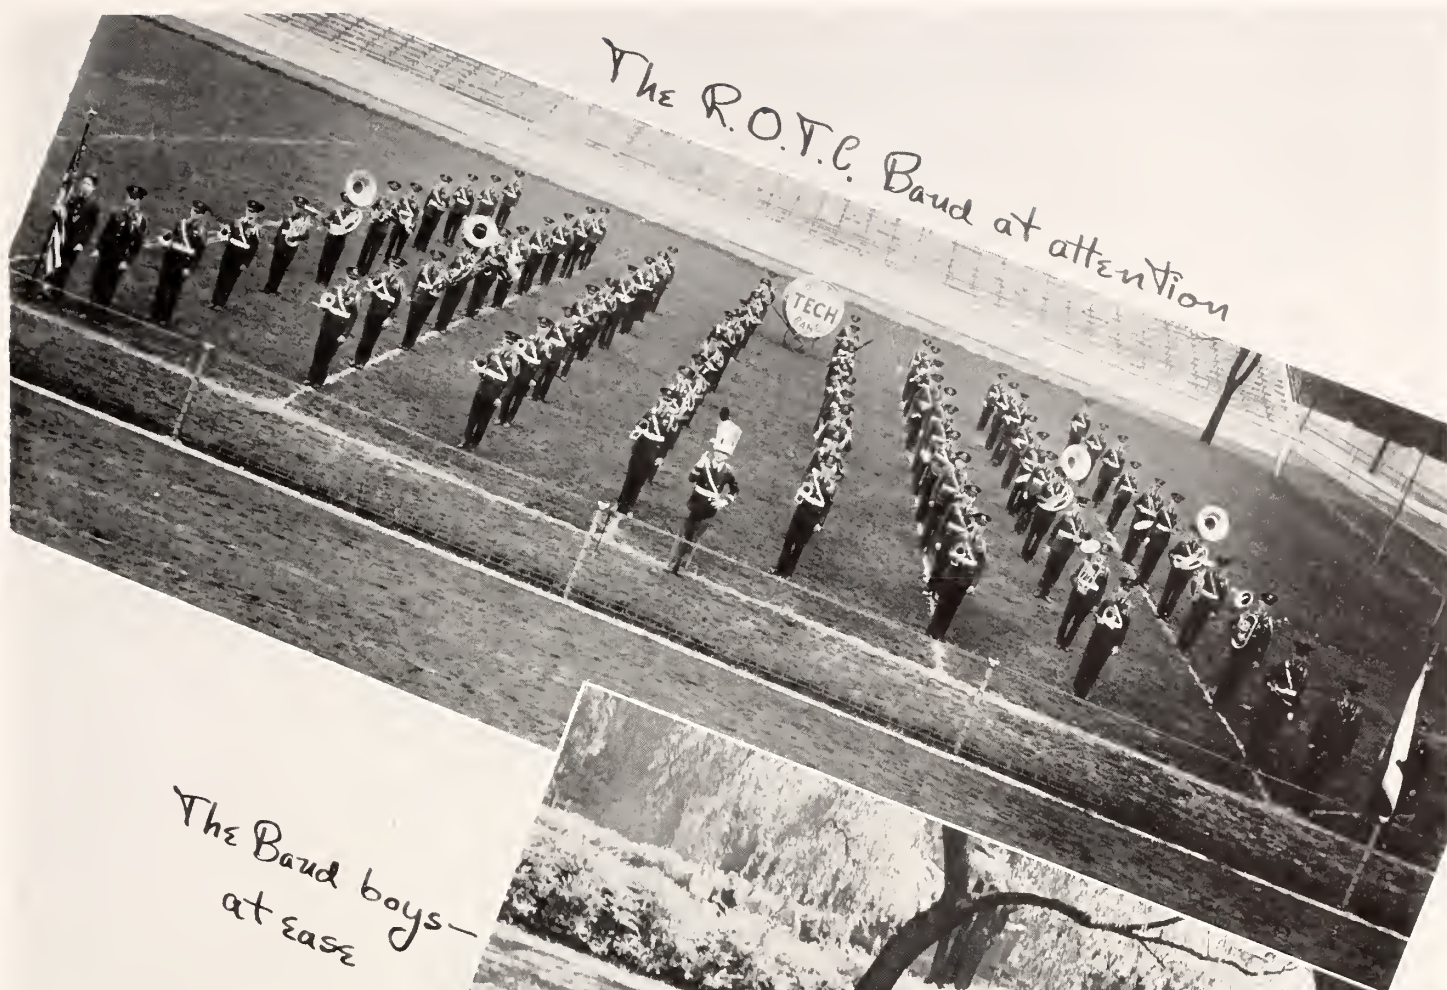 The R.O.T.C. Band at attention
TECH
BAND
The Band boys—
at ease